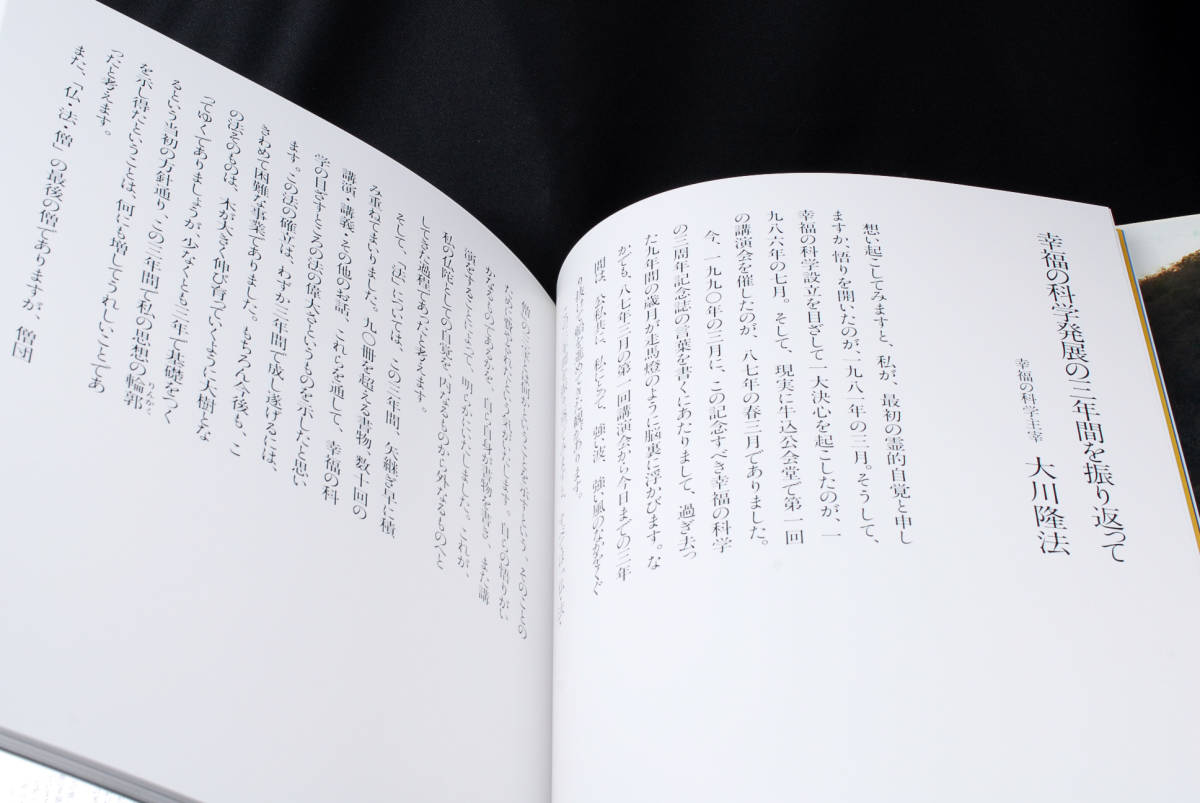 幸福の科学発展の三年間を振り返って
幸福の科学主宰　大川隆法
想い起こしてみますと、私が、最初の霊的自覚と申し
ますか、悟りを開いたのが、一九八一年の三月。そうして、
幸福の科学設立を目ざして一大決心を起こしたのが、一
九八六年の七月。そして、現実に牛込公会堂で第一回
の講演会を催したのが、八七年の春三月でありました。
今、一九九〇年の三月に、この記念すべき幸福の科学
の三周年記念誌の言葉を書くにあたりまして、過ぎ去っ
た九年間の歳月が走馬燈のように脳裏に浮かびます。な
かでも、八七年三月の第一回講演会から今日までの三年
間は、公私共に、私にとって、強い波、強い風のなかをくぐ
演をすることによって、明らかにいたしました。これが、
私の仏陀としての自覚を、内なるものから外なるものへと
してきた過程であったと考えます。
そして、「法」については、この三年間、矢継ぎ早に積
み重ねてまいりました。九〇冊を超える書物、数十回の
講演・講義、その他のお話、これらを通して、幸福の科
学の目ざすところの法の偉大さというものを示したと思い
ます。この法の確立は、わずか三年間で成し遂げるには、
きわめて困難な事業でありました。もちろん今後も、こ
の法そのものは、木が大きく伸び育っていくように大樹とな
ってゆくでありましょうが、少なくとも三年で基礎をつく
るという当初の方針通り、この三年間で私の思想の輪郭
りんかく
を示し得たということは、何にも増してうれしいことであ
ったと考えます。
また、「仏・法・僧」の最後の僧でありますが、僧団